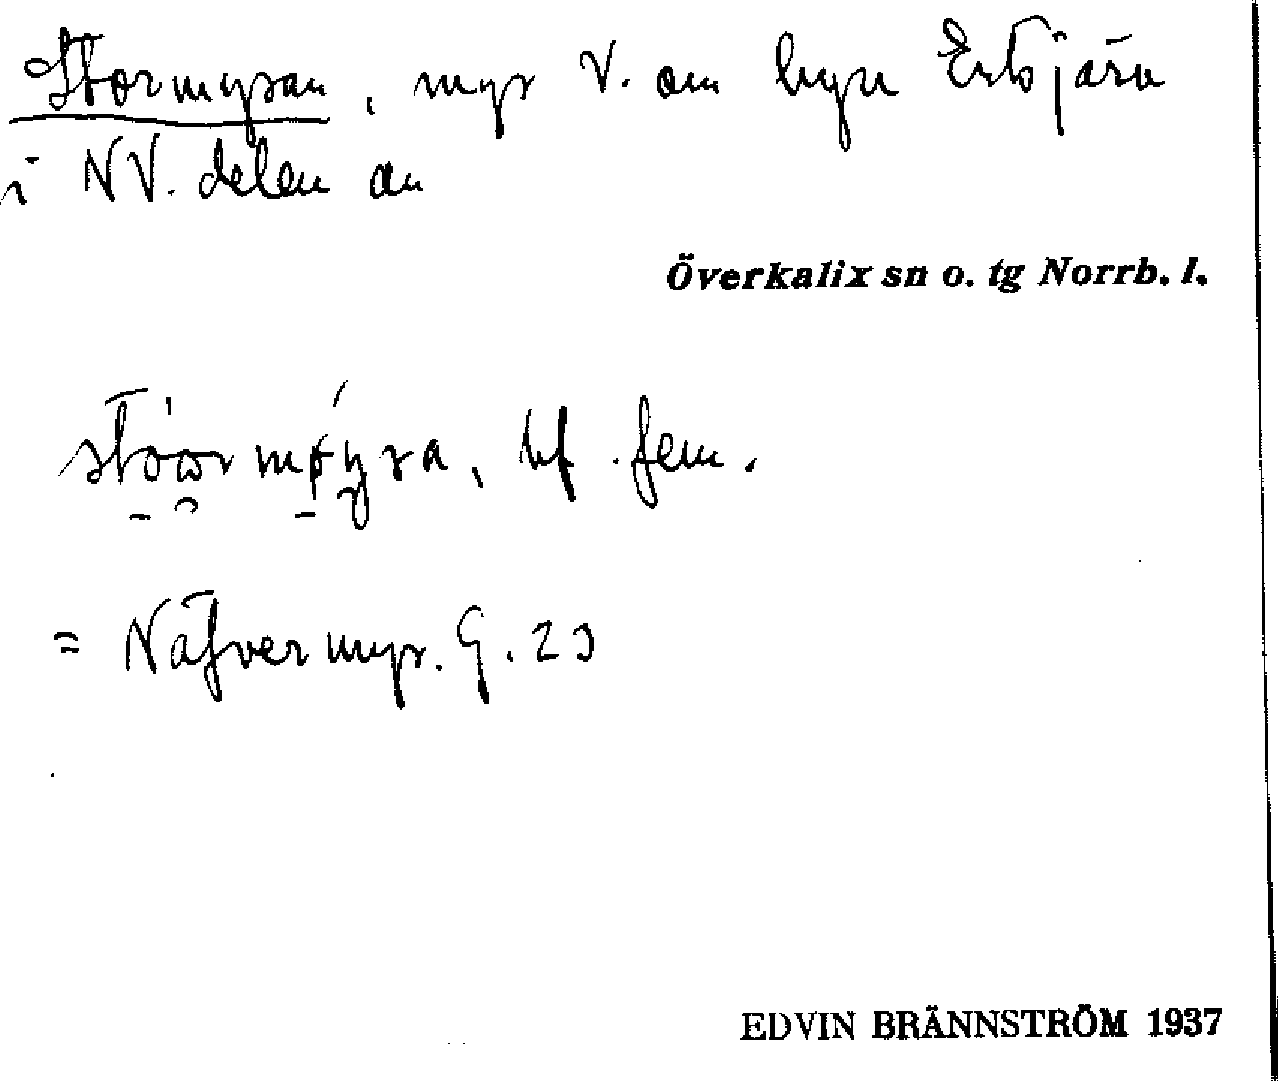 Stormyran, myr V. om byn Esbjärv
i NV. delen av
Överkalix sn o. tg Norrb. l.
bf. fem.
= Näfvermyr. G. 23
EDVIN BRÄNNSTRÖM 1937